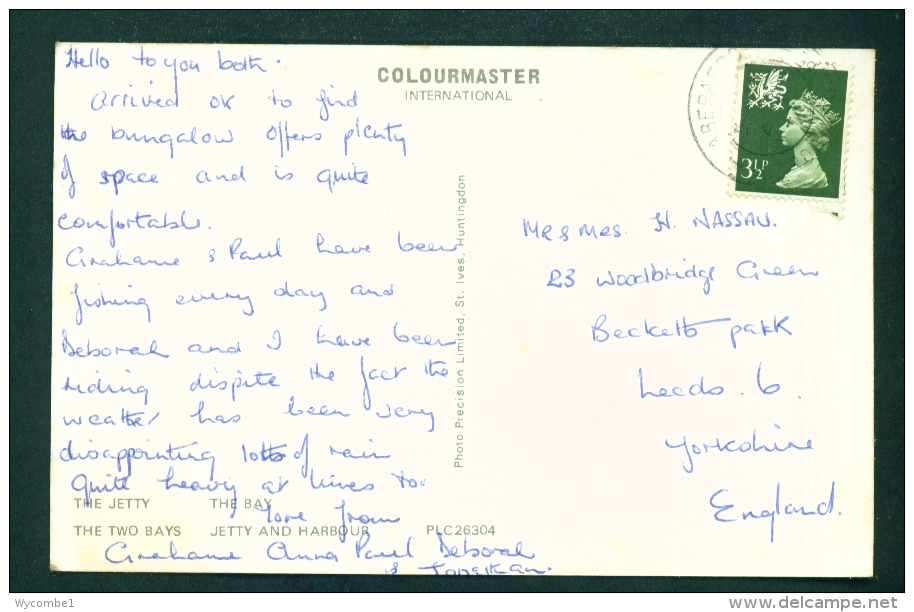 Hello to you both.
Arrived OK to find
the bungalow offers plenty
of space and is quite
comfortable.
Grahame & Paul have been
fishing every day and
Deborah and I have been
riding dispite the fact the
weather has been very
disappointing lotts of rain
quite heavy at times to.
love from
Grahame Anna Paul Deborah
& Jonathan.
THE JETTY THE BAY
THE TWO BAYS JETTY AND HARBOUR PLC26304
COLOURMASTER
INTERNATIONAL
Photo Precision Limited, St. Ives, Huntingdon
3½P
MR & MRS. H. NASSAU.
23 Woodbridge Green
Becketts park
Leeds. 6.
Yorkshire
England.
Wycombe1
www.delcampe.net